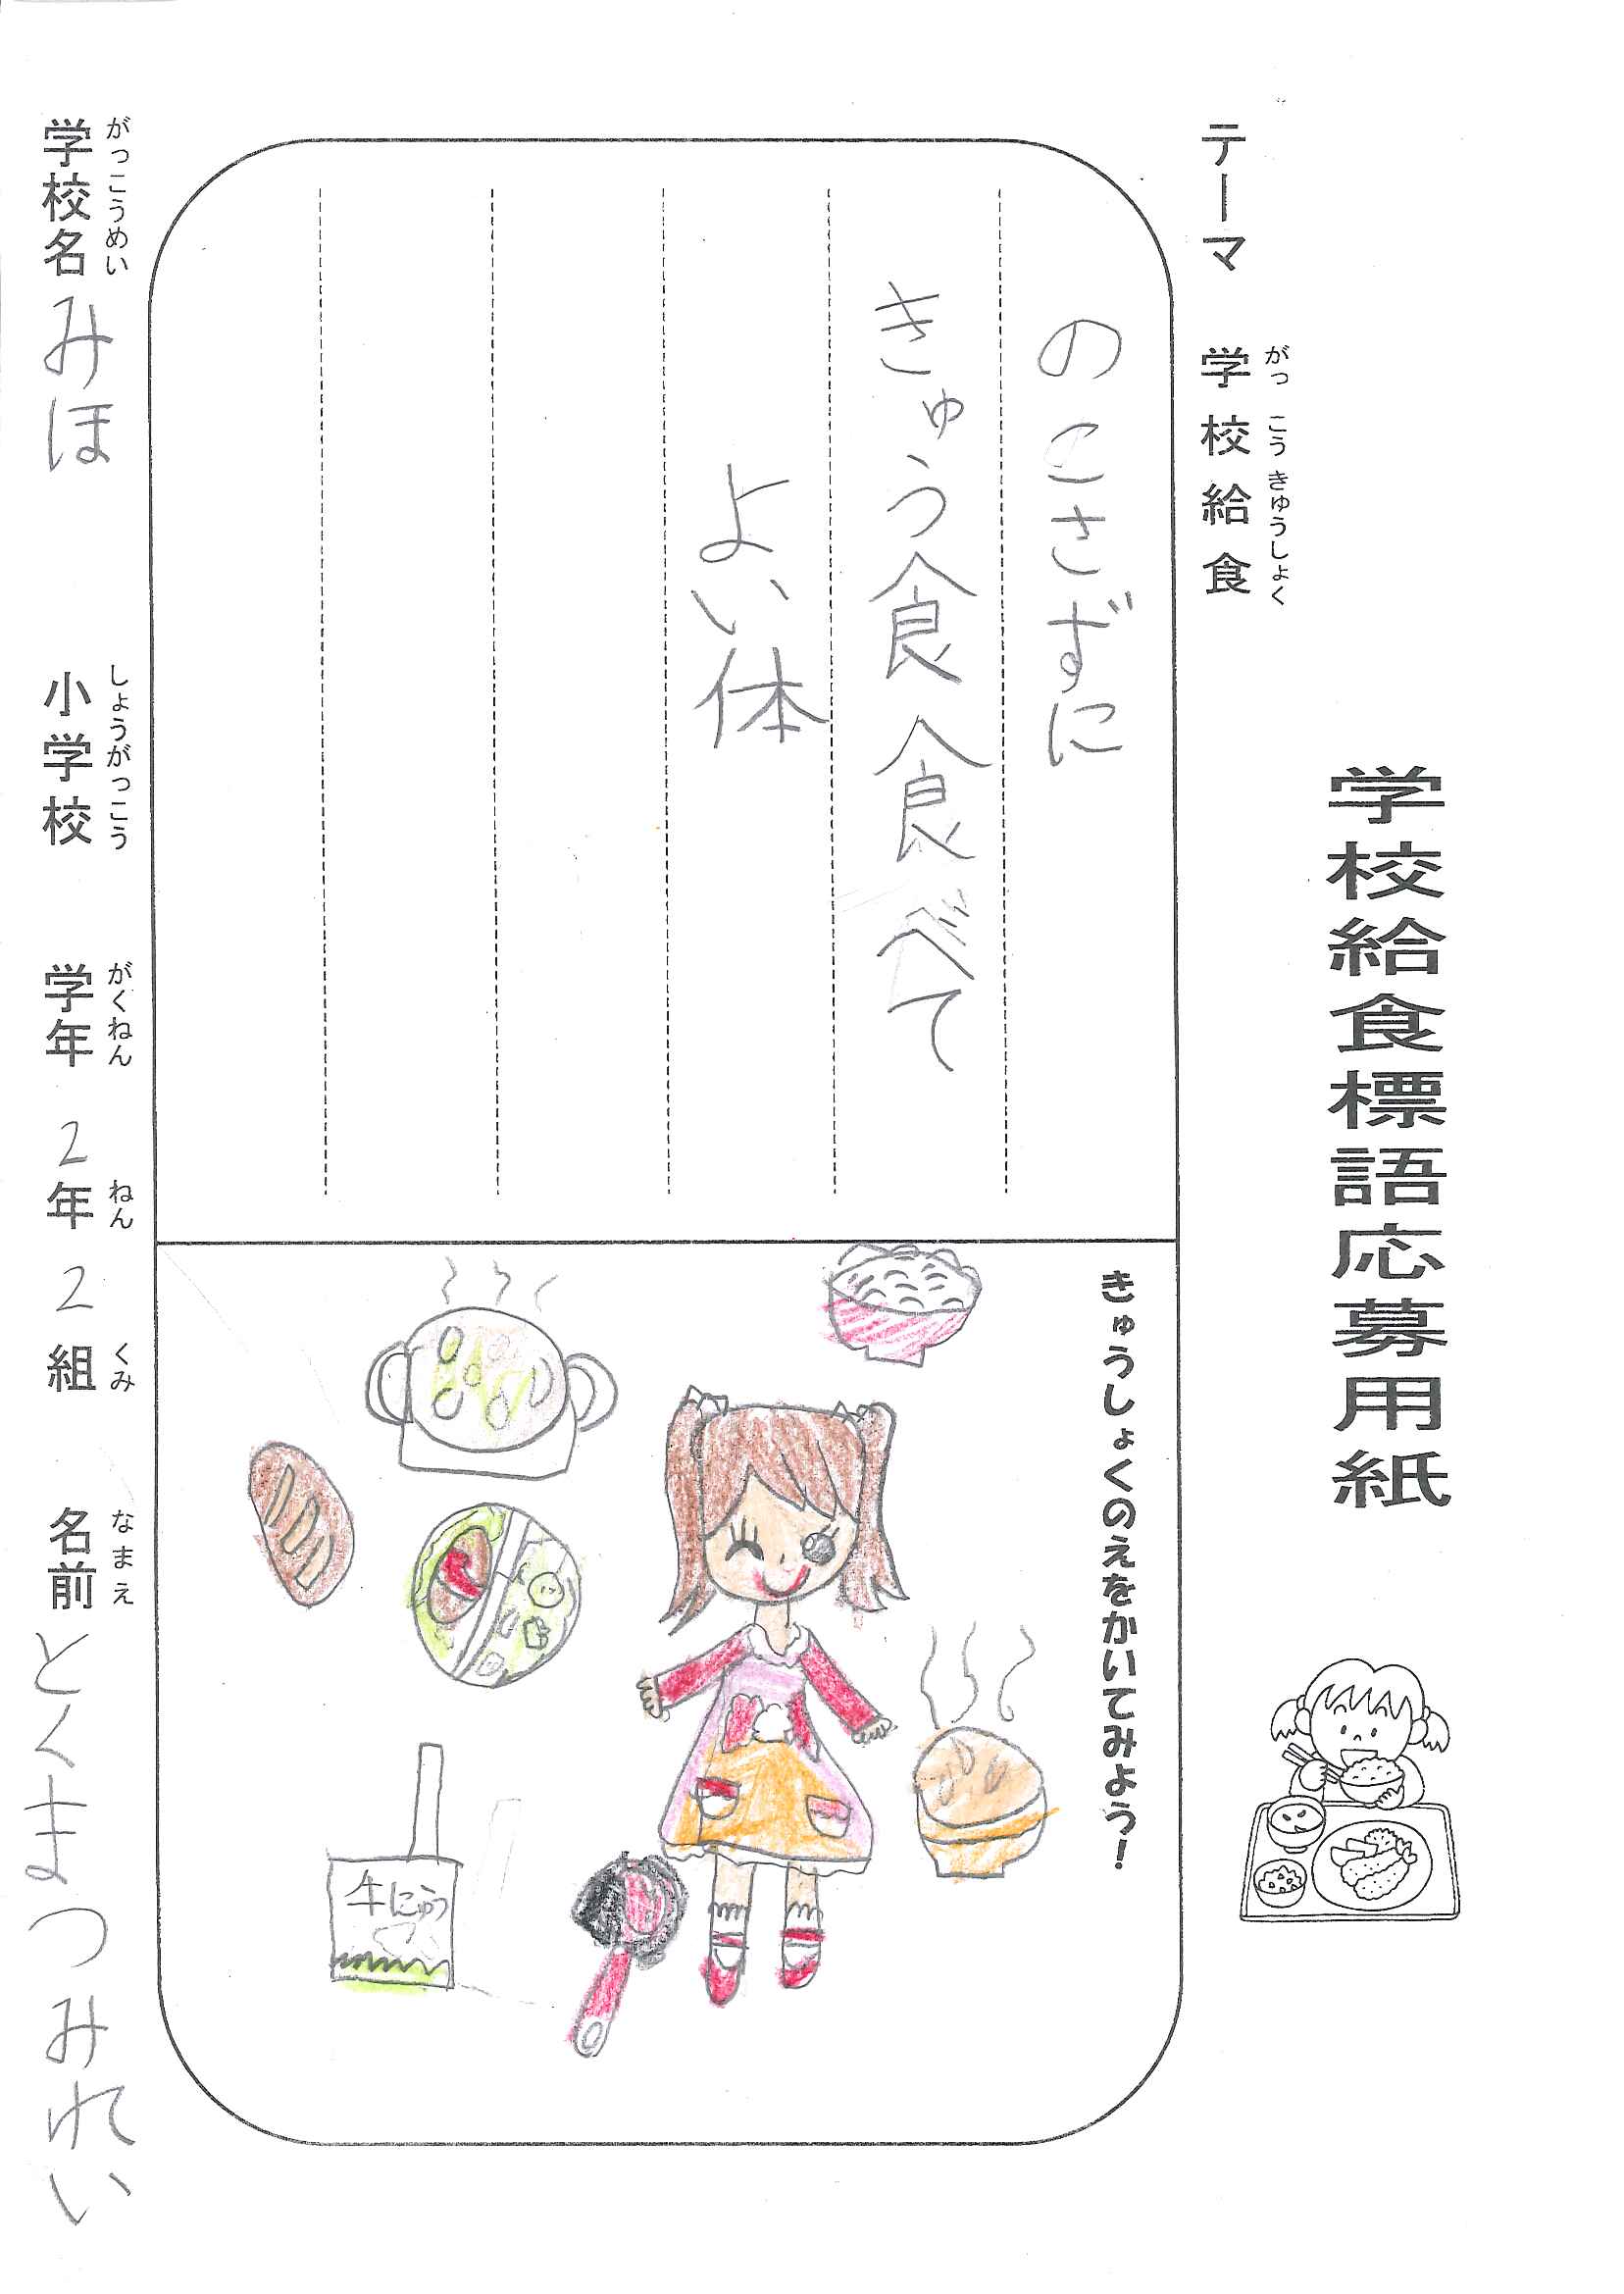 学校給食標語応募用紙
テーマ 学校給食
がっこうきゅうしょく
のこさずに
きゅう食食べて
よい体
きゅうしょくのえをかいてみよう！
牛にゅう
学校名 みほ 小学校 学年 2年 2組 名前 とくまつみれい
がっこうめい しょうがっこう がくねん ねん くみ なまえ